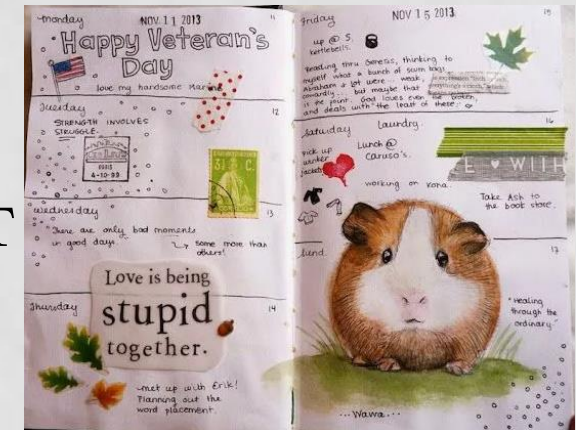 T
Monday
NOV. 11 2013
11
Happy Veteran's
Day
love my handsome Marine
Tuesday
12
STRENGTH INVOLVES
STRUGGLE.
PARIS
4-10-93
31 C.
Wednesday
13
"There are only bad moments
in good days.
some more than
others!
Love is being
stupid
together.
Thursday
14
met up with Erik!
Planning out the
word placement.
Friday
NOV 15 2013
15
up @ 5.
kettlebells.
Reading thru Genesis, thinking to
myself what a bunch of
Abraham & Lot were - weak,
cowardly... but maybe that
is the point. God loves even the broken,
and deals with "the least of these".
Saturday
Laundry.
16
Pick up
winter
jackets
Lunch @
Caruso's.
E ♥ WITH
working on Kona.
Take Ash to
the book store.
17
"Healing
through the
ordinary"
...Wawa...